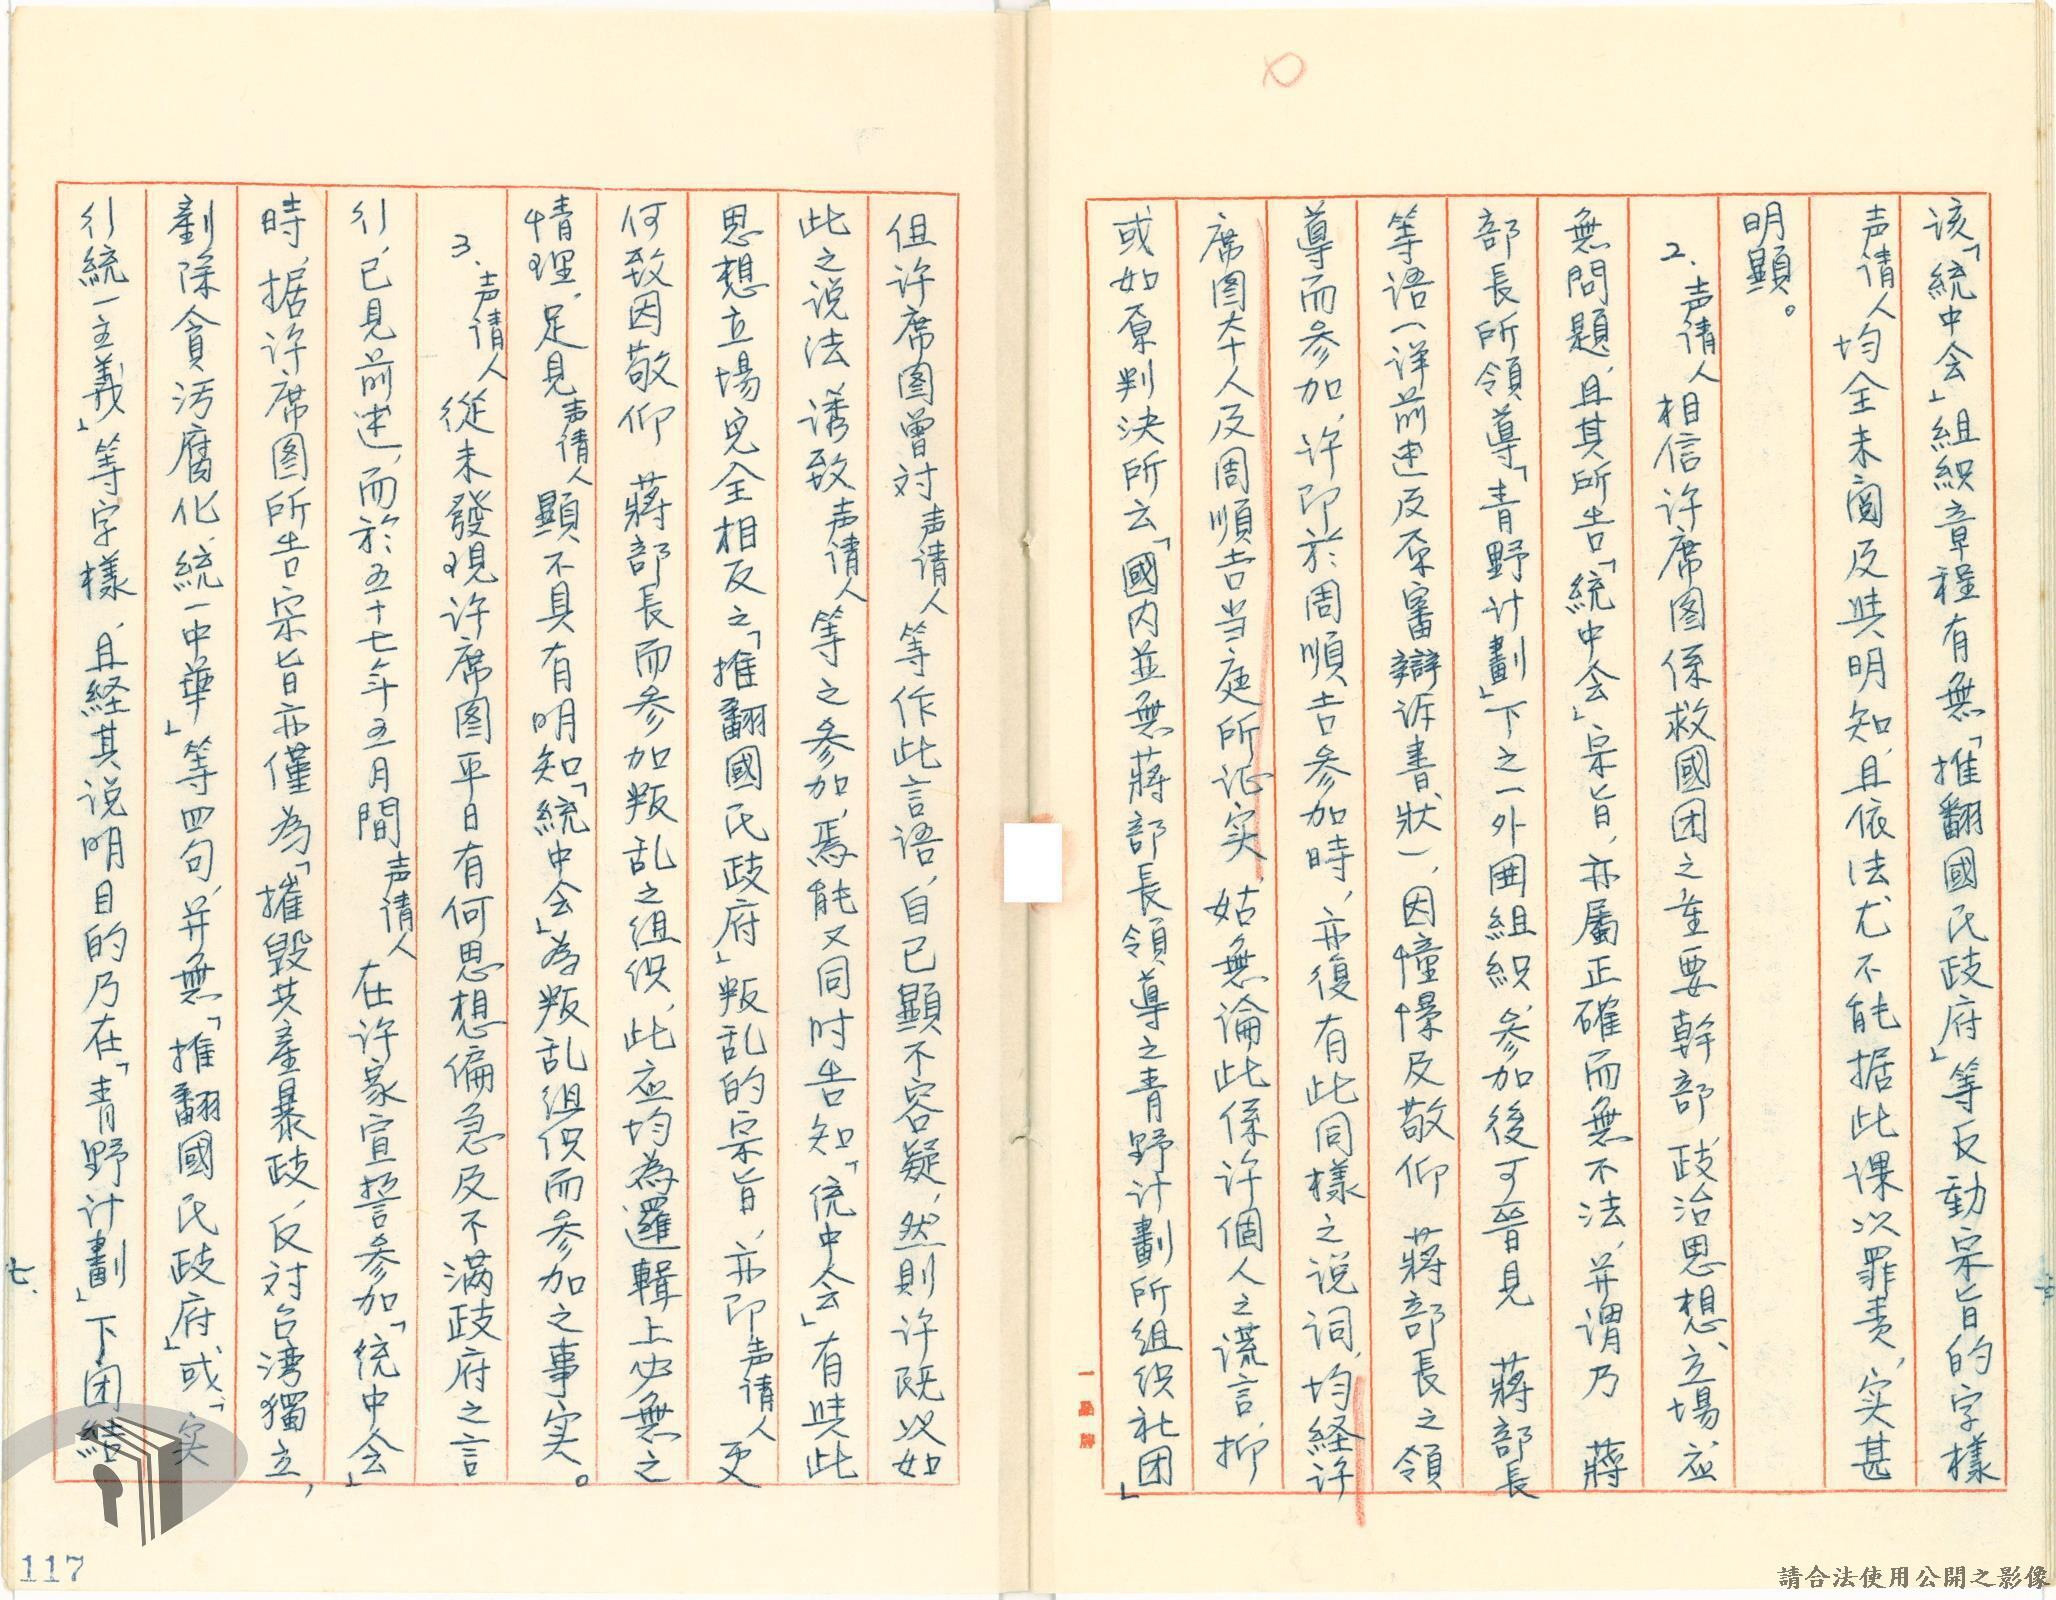 该「統中会」組織章程有無「推翻國民政府」等反動宗旨的字樣
声请人均全未閲及與明知,且依法尤不能据此课以罪责,实甚
明顯。
2、声请人相信许席图係救國团之重要幹部,政治思想、立場应
無問題,且其所告「統中会」宗旨,亦屬正確而無不法,并謂乃 蔣
部長所領導「青野计劃」下之一外囲組織,参加後可晉見 蔣部長
等语(详前述及原審辯诉書、狀),因憧憬及敬仰 蔣部長之領
導而参加,许即於周順吉参加時,亦復有此同樣之说词,均経许
席图本人及周順吉当庭所证实,姑無論此係许個人之謊言,抑
或如原判决所云「國内並無蔣部長領導之青野计劃所组织社团」
但许席图曾対声请人等作此言语,自已顯不容疑,然則许既以如
此之说法,诱致声请人等之参加,焉能又同时告知「统中会」有與此
思想立場完全相反之「推翻國民政府」叛乱的宗旨,亦即声请人更
何致因敬仰 蔣部長而参加叛乱之组织,此应均為邏輯上必無之
情理,足見声请人顯不具有明知「統中会」為叛乱组织而参加之事实。
3、声请人從未發現许席图平日有何思想偏急及不满政府之言
行,已見前述,而於五十七年五月間声请人在许家宣誓参加「统中会」
時,据许席图所告宗旨亦僅為「摧毀共產暴政,反対台湾獨立,
剷除貪污腐化,統一中華」等四句,并無「推翻國民政府」或「实
行統一主義」等字樣,且経其说明目的乃在「青野计劃」下团結
七、
一品牌
117
請合法使用公開之影像